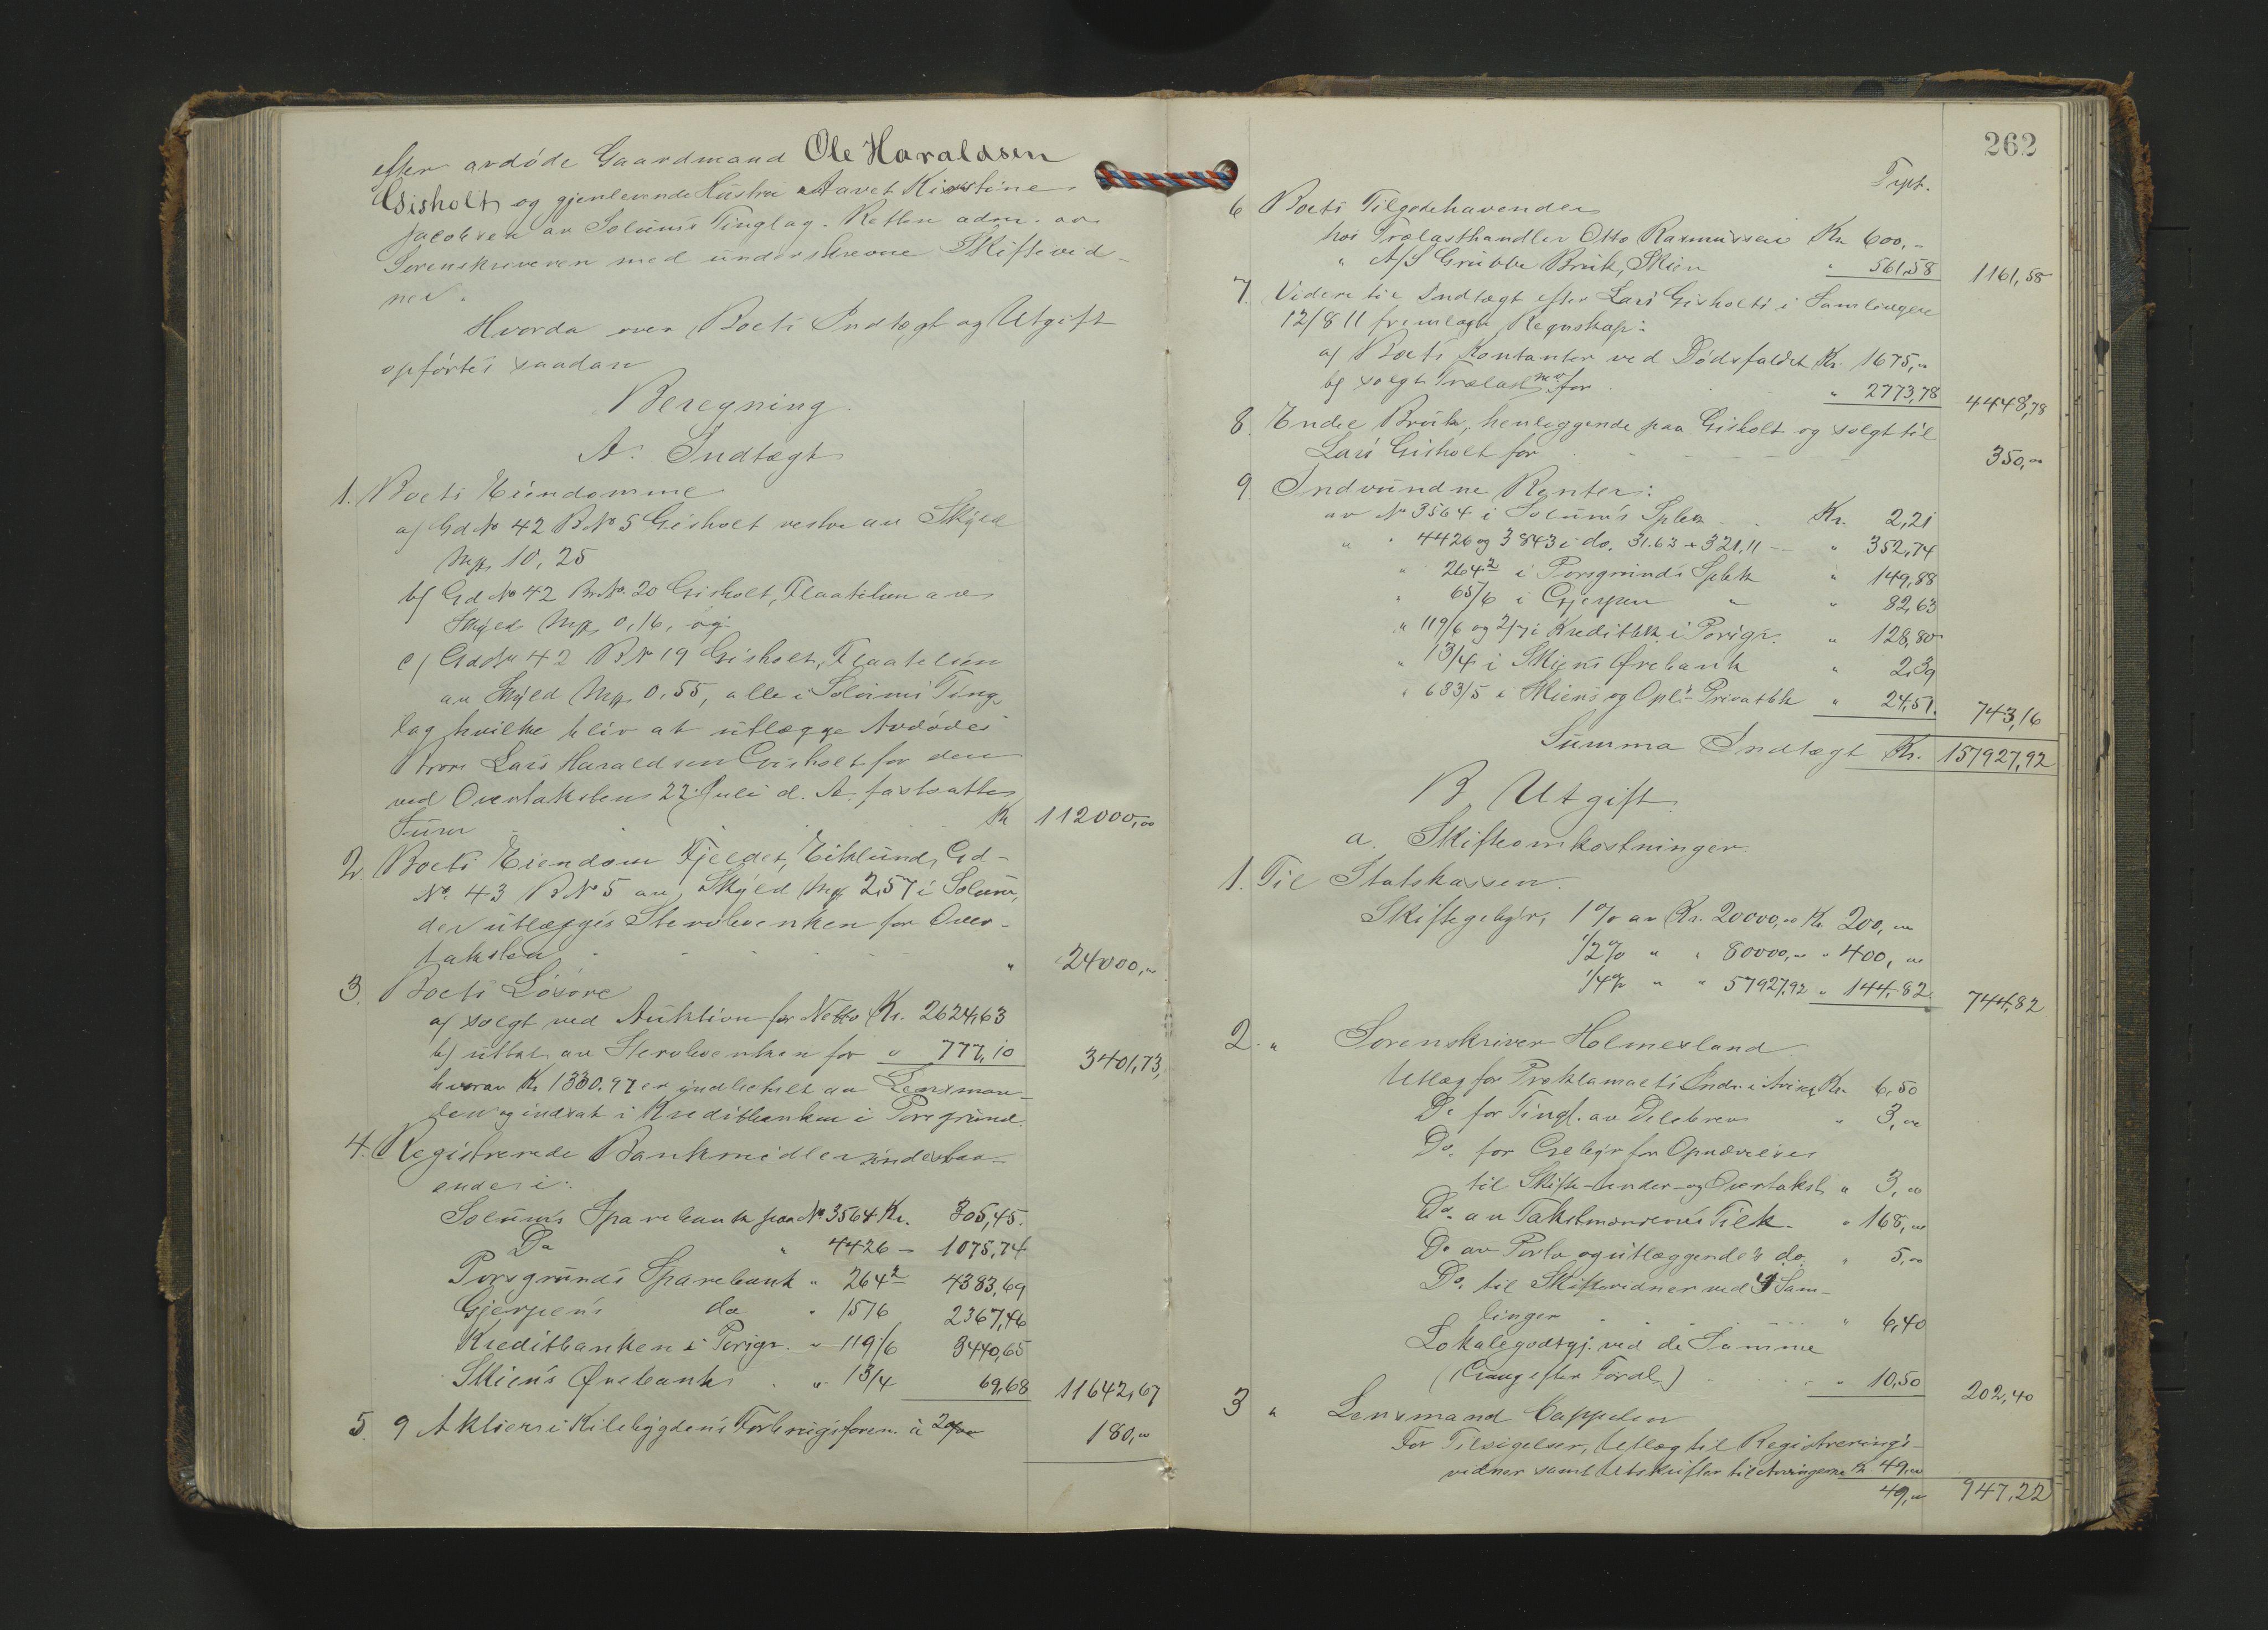 efter avdøde Gaardmand Ole Haraldsen
Gisholt og gjenlevende Hustru Aavet Kirstine
Jacobsen av Solums Tinglag. Retten adm. av
Sorenskriveren med underskrevne Skiftevid-
ner.
Hvorda over Boets Indtægt og Utgift
opførtes saadan
Beregning.
A. Indtægt
1. Boets Eiendomme
a) Gd No 42 B No 5 Gisholt vestre av Skyld
Mk 10,25
b) Gd No 42 Br No. 20 Gisholt, Flaatelien av
Skyld Mk 0,16, og
c) Gd No 42 B N 19 Gisholt, Flaatelien
av Skyld Mk. 0,55, alle i Solums Ting-
lag hvilke bliv at utlægge Avdødes
Bror Lars Haraldsen Gisholt for den
ved Overtaksten 22 Juli d. A. fastsatte
Sum Kr 112000,00
2. Boets Eiendom Fjeldet, Eiklund, Gd-
No. 43 B No 5 av Skyld Mk 2,57 i Solum,
der utlægges Stervboenken for Over-
taksten " 24000,00
3. Boets Løsøre
a) solgt ved Auktion for Netto Kr. 2624,63
b) uttat av Stervboenken for " 777,10 3401,73
hvorav Kr 1330.97 er indbetalt av Lensman-
den og indsat i Kreditbanken i Porsgrund.
4. Registrerede Bankmidler indestaa-
ende i:
Solums Sparebank paa No 3564 Kr. 305,45.
Do " 4426 - 1075,74
Porsgrunds Sparebank " 264² 4383,69
Gjerpens do " 1576 2367,46
Kreditbanken i Porsgr. " 119/6 3440,65
Skiens Ørebank " 13/4 69,68 11642,67
5. 9 Aktier i Kilebygdens Forbrugsforen. à 20,00 180,00
262
Trpt.
6 Boets Tilgodehavender
hos Trælasthandler Otto Rasmussen Kr 600,-
" A/S Grubbe Bruk, Skien " 561,58 1161,58
7. Videre til Indtægt efter Lars Gisholts i Samlingen
12/8 11 fremlagte Regnskap:
a) Boets Kontanter ved Dødsfaldet Kr. 1675,00
b) solgt Trælast m.v. for " 2773,78 4448,78
8. Endel Bruk, henliggende paa Gisholt og solgt til
Lars Gisholt for 350,00
9. Indvundne Renter:
av No 3564 i Solums Spbk. Kr. 2,21
" " 4426 og 3843 i do. 31.63 + 321,11 - " 352,74
" 264² i Porsgrunds Spbk " 149,88
" 65/6 i Gjerpen " " 82,63
" 119/6 og 2/7 i Kreditbk. i Porsgr. " 128,80
" 13/4 i Skiens Ørebank " 2,39
" 683/5 i Skiens og Opl.s Privatbk " 24,51. 743,16
Summa Indtægt Kr. 157927,92
B. Utgift.
a. Skifteomkostninger
1. Til Statskassen.
Skiftegebyr, 1% av Kr. 20000,00 Kr. 200,00
1/2% " " 80000,00 " 400,00
1/4% " " 57927,92 " 144,82 744,82
2. " Sorenskriver Holmesland
Utlæg for Proklamaets Indr. i Avisg Kr. 6,50
Do for Tingl. av Delebrev " 3,00
Do. for Gebyr for Opnævnelser
til Skifte-Under- og Overtakst " 3,00
Do. av Takstmændenes Tilk. " 168,00
Do av Porto og utlæggendes do. " 5,00
Do. til Skiftevidner ved 4 Sam-
linger " 6,40
Lokalegodtgj. ved de Samme
(Gang efter Fordl.) " 10,50 202,40
3 " Lensmand Cappelen
For Tilsigelser, Utlæg til Registrerings-
vidner samt Utskrifter til Arvingerne Kr 49,00
49,00 947,22